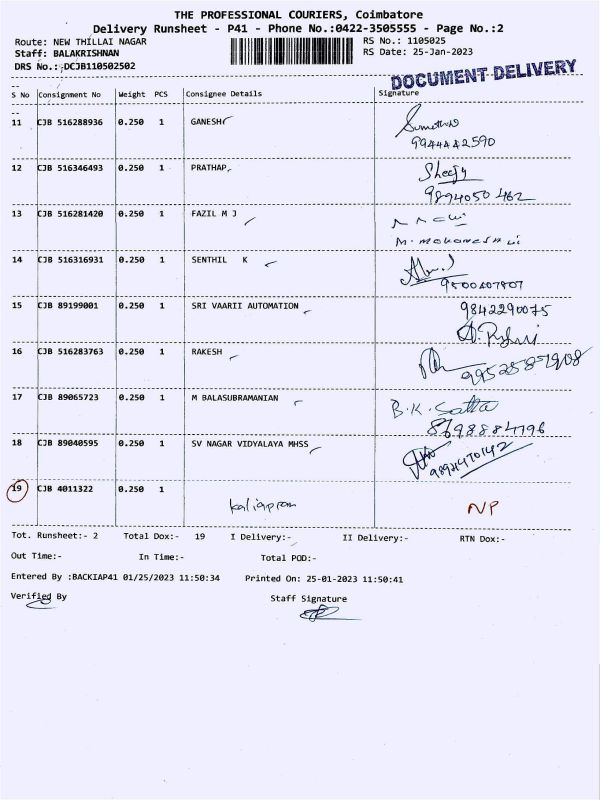 THE PROFESSIONAL COURIERS, Coimbatore
Delivery Runsheet - P41 - Phone No.:0422-3505555 - Page No.:2
Route: NEW THILLAI NAGAR RS No.: 1105025
Staff: BALAKRISHNAN RS Date: 25-Jan-2023
DRS No.:-DCJB110502502
DOCUMENT DELIVERY
S No Consignment No Weight PCS Consignee Details Signature
11 CJB 516288936 0.250 1 GANESH
9944442590
12 CJB 516346493 0.250 1 PRATHAP
9894050462
13 CJB 516281420 0.250 1 FAZIL M J
14 CJB 516316931 0.250 1 SENTHIL K
15 CJB 89199001 0.250 1 SRI VAARII AUTOMATION 9842290075
16 CJB 516283763 0.250 1 RAKESH
17 CJB 89065723 0.250 1 M BALASUBRAMANIAN B.K.
8698884796
18 CJB 89040595 0.250 1 SV NAGAR VIDYALAYA MHSS
19 CJB 4011322 0.250 1
NP
Tot. Runsheet:- 2 Total Dox:- 19 I Delivery:- II Delivery:- RTN Dox:-
Out Time:- In Time:- Total POD:-
Entered By :BACKIAP41 01/25/2023 11:50:34 Printed On: 25-01-2023 11:50:41
Verified By Staff Signature